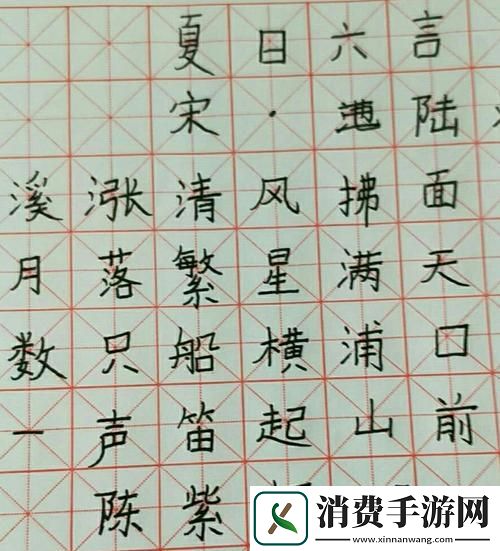 夏日六言
宋·陆
溪涨清风拂面
月落繁星满天
数只船横浦口
一声笛起山前
陈紫
消费手游网
www.xinnanwang.com